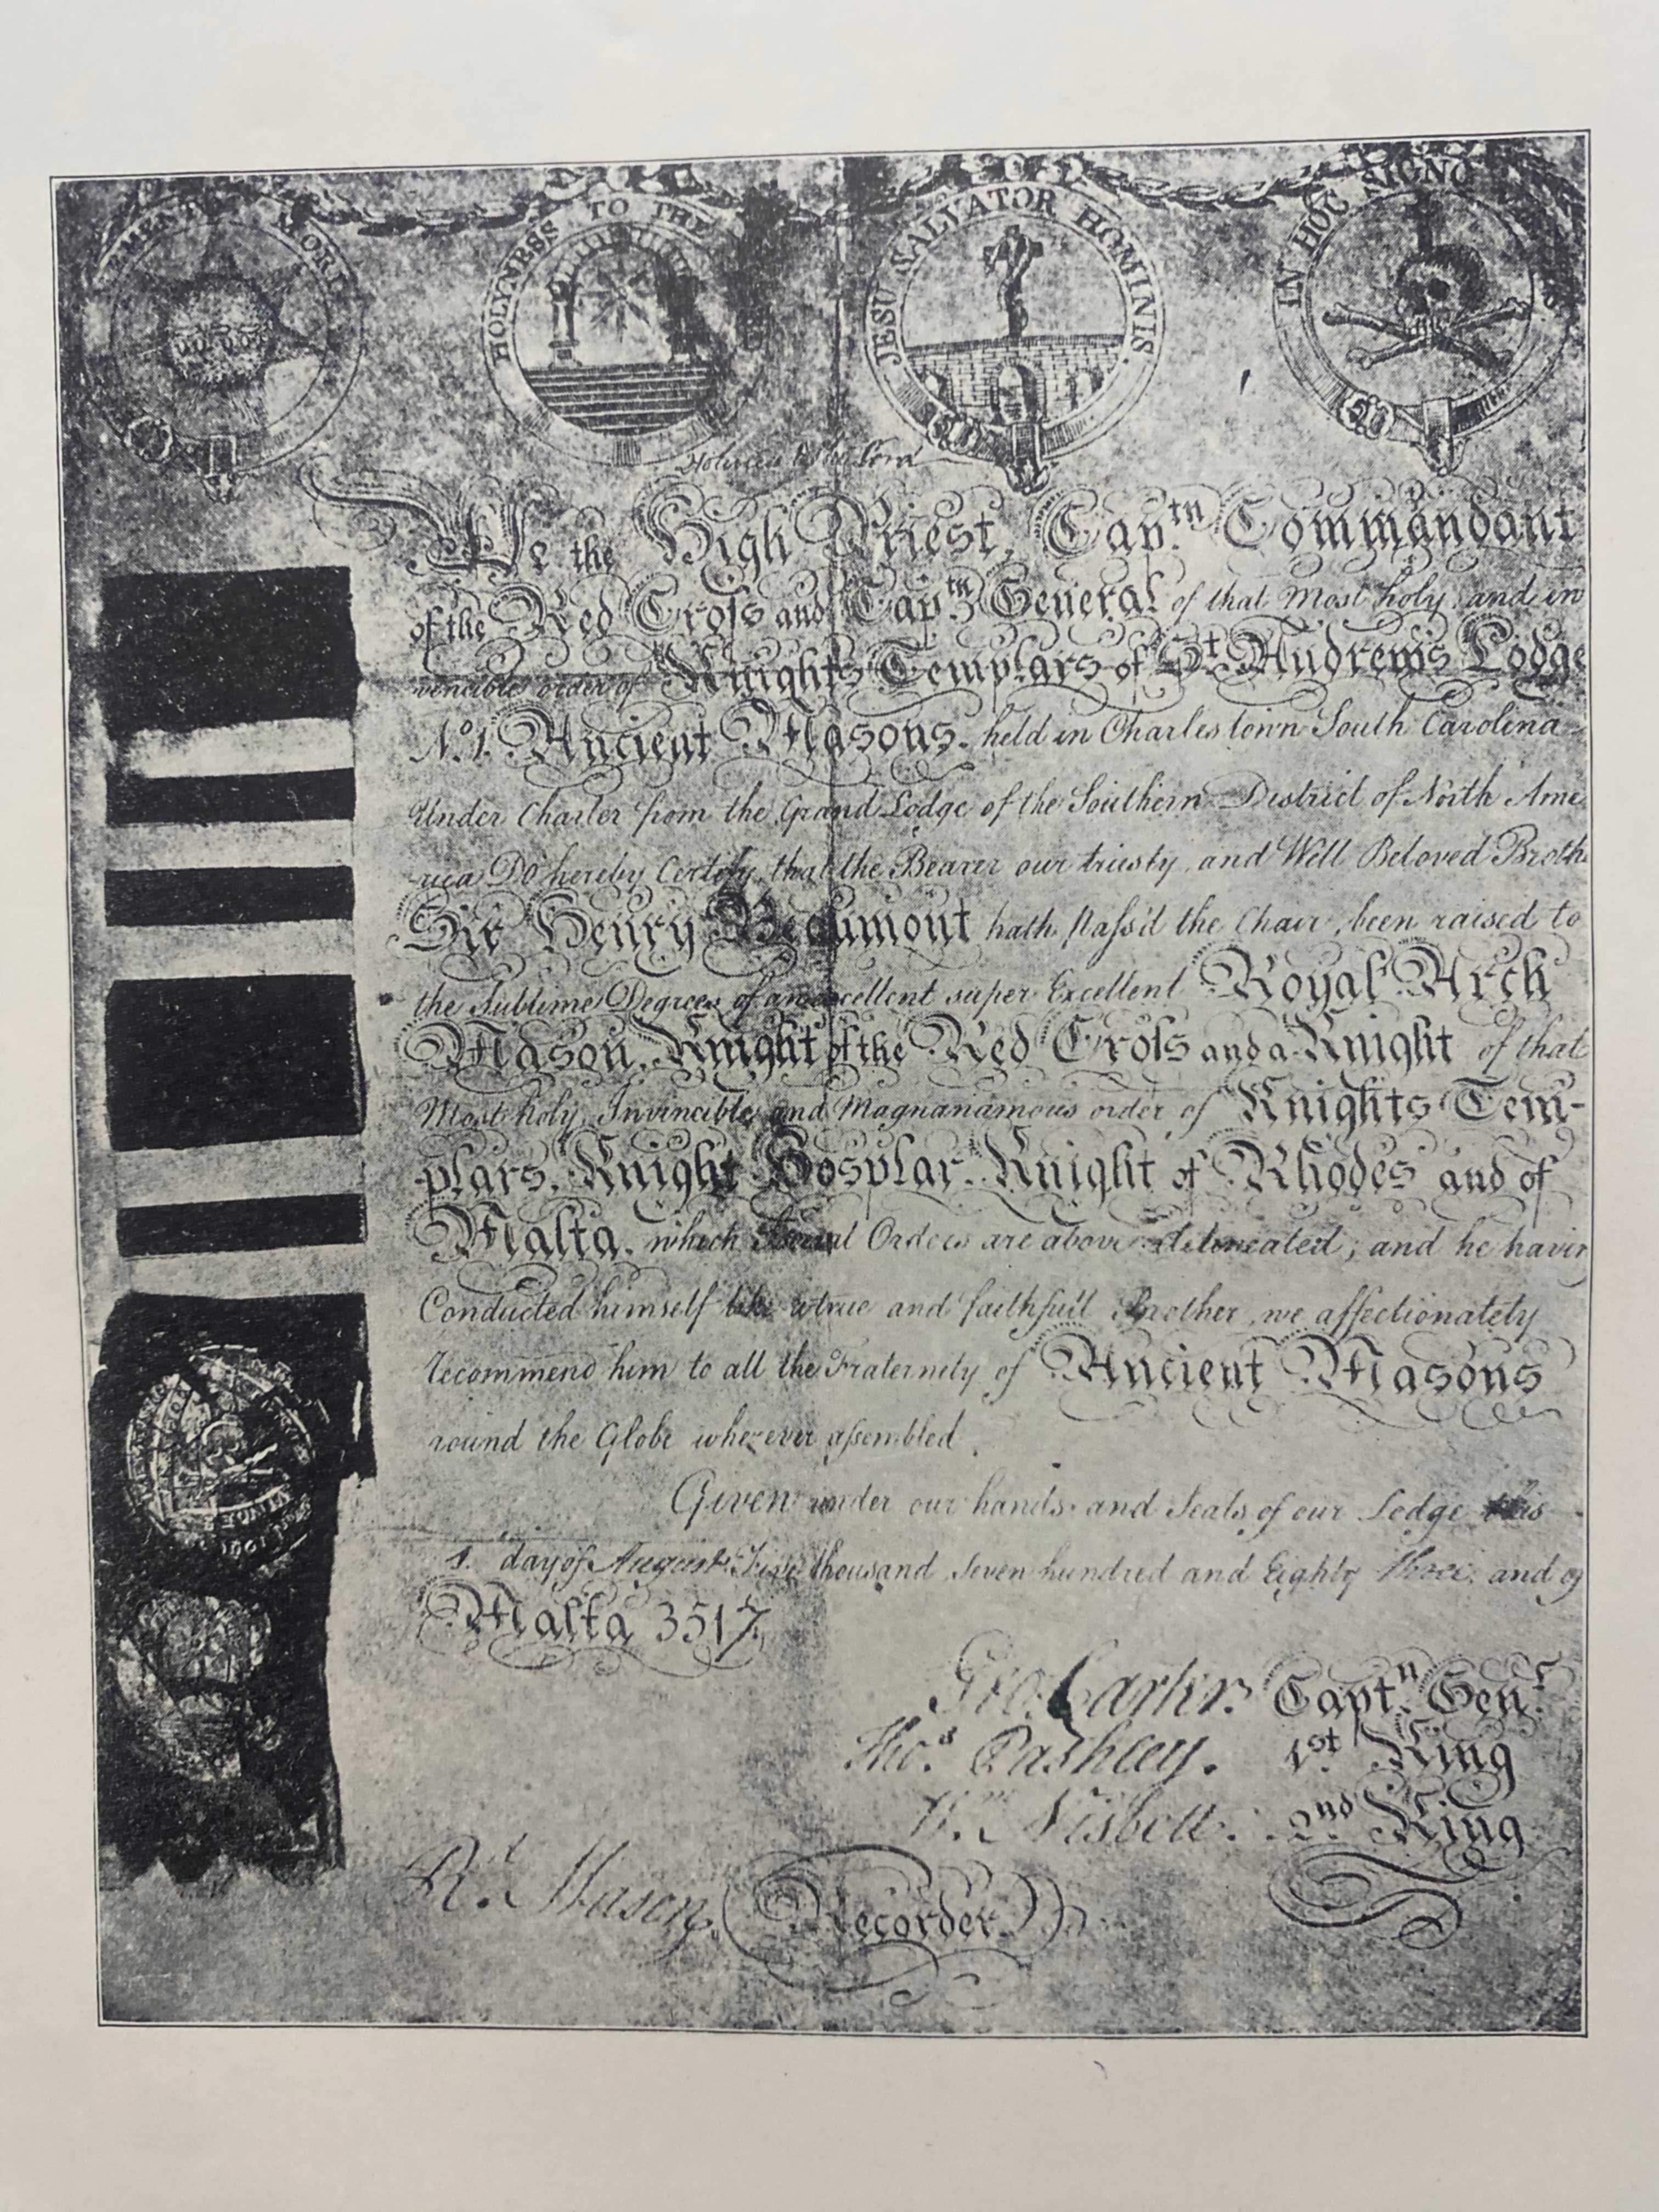 MEMENTO MORI
HOLYNESS TO THE
JESU SALVATOR HOMINIS.
IN HOC SIGNO
Holiness to the Lord
We the High Priest, Captn. Commandant
of the Red Cross and Captn. General of that Most holy, and in
vencible order of Knights Templars of St. Andrew's Lodge
No. 1. Ancient Masons. held in Charlestown South Carolina
Under Charter from the Grand Lodge of the Southern District of North Ame
rica DO hereby Certify, that the Bearer our trusty, and Well Beloved Broth
Sir Henry Beaumont hath pass'd the Chair, been raised to
the Sublime Degrees of an excellent super Excellent Royal Arch
Mason, Knight of the Red Cross and a Knight of that
Most holy, Invincible, and Magnanamous order of Knights Tem-
plars, Knight Hosplar. Knight of Rhodes and of
Malta, which Orders are above delineated; and he havin
Conducted himself like a true and faithfull Brother, we affectionately
recommend him to all the Fraternity of Ancient Masons
round the Globe wherever assembled.
Given under our hands and Seals of our Lodge this
1. day of August Five thousand Seven hundred and Eighty Three, and of
Malta 3517
Geo. Carter. Captn. Genl.
Thos. Pashley. 1st. King
Wm. Nisbett. 2nd King
Rd. Mason, Recorder